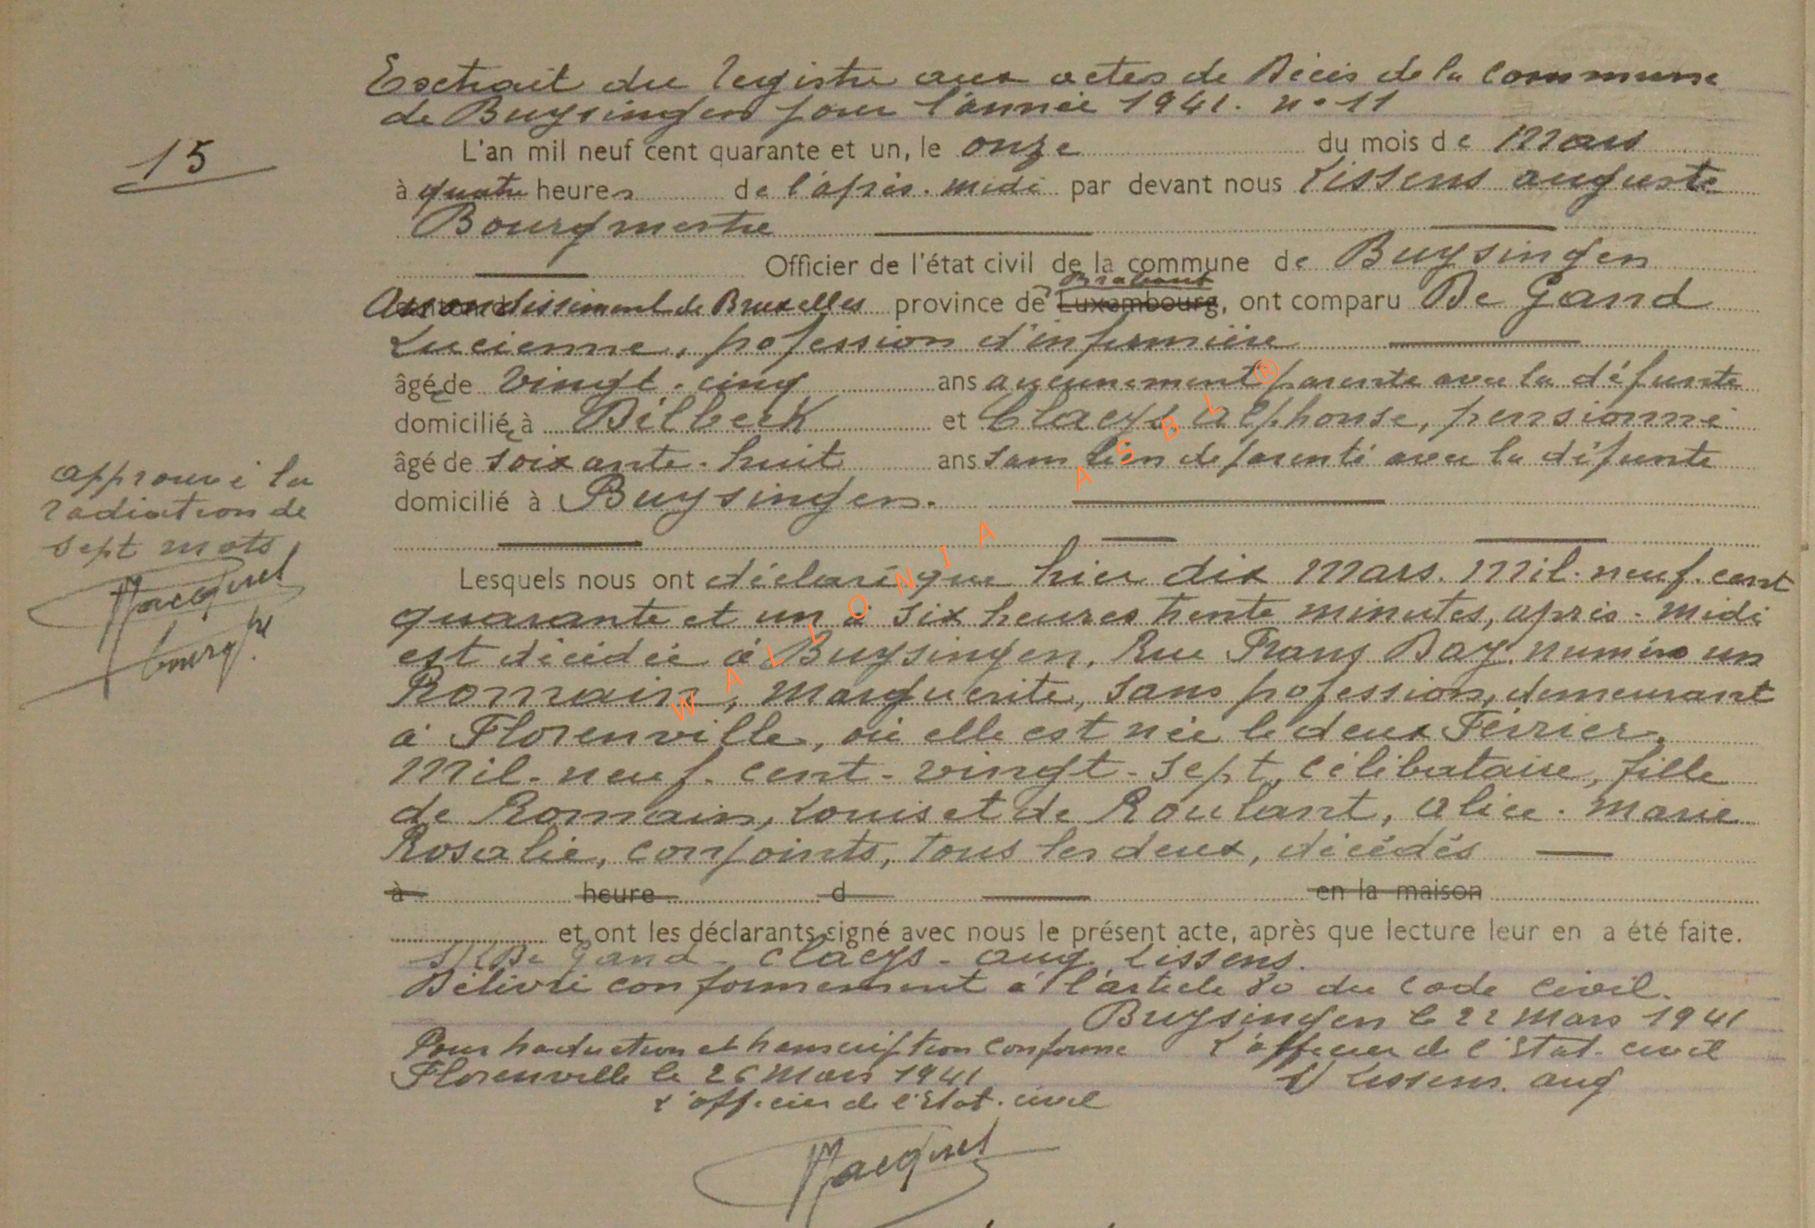 Extrait du registre aux actes de Décès de la commune
de Buysingen pour l'année 1941. n° 11
15
L'an mil neuf cent quarante et un, le onze du mois de Mars
à quatre heures de l'après-midi par devant nous Lissens auguste
Bourgmestre
Officier de l'état civil de la commune de Buysingen
Arrondissement de Bruxelles province de Brabant Luxembourg, ont comparu De Gand
Lucienne, profession d'infirmière
âgée de vingt-cinq ans aucunement parente avec la défunte
domiciliée à Dilbeek et Claeys alphonse, pensionné
âgé de soixante-huit ans sans lien de parenté avec la défunte
domicilié à Buysingen.
approuvé la
radiation de
sept mots
Jacquet
bourgre
Lesquels nous ont déclaré que hier dix Mars. Mil-neuf-cent
quarante et un à six heures trente minutes, après-midi
est décédée à Buysingen, Rue Franz Bay numéro un
Romain, Marguerite, sans profession, demeurant
à Florenville, où elle est née le deux Février
Mil-neuf-cent-vingt-sept, célibataire, fille
de Romain, Louis et de Roulant, alice-Marie
Rosalie, conjoints, tous les deux, décédés
à heure d en la maison
et ont les déclarants signé avec nous le présent acte, après que lecture leur en a été faite.
s/ De Gand - Claeys - aug. Lissens.
Délivré conformément à l'article 80 du Code Civil.
Buysingen le 22 Mars 1941
Pour traduction et transcription conforme L'officier de l'Etat-civil
Florenville le 26 Mars 1941 s/ Lissens. aug
L'officier de l'Etat-civil
Jacquet
WALLONIA ASBL ®